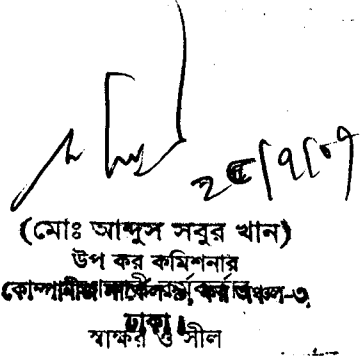 ২৫/৭/০৭
(মোঃ আব্দুস সবুর খান)
উপ কর কমিশনার
কর অঞ্চল-৩,
ঢাকা।
স্বাক্ষর ও সীল